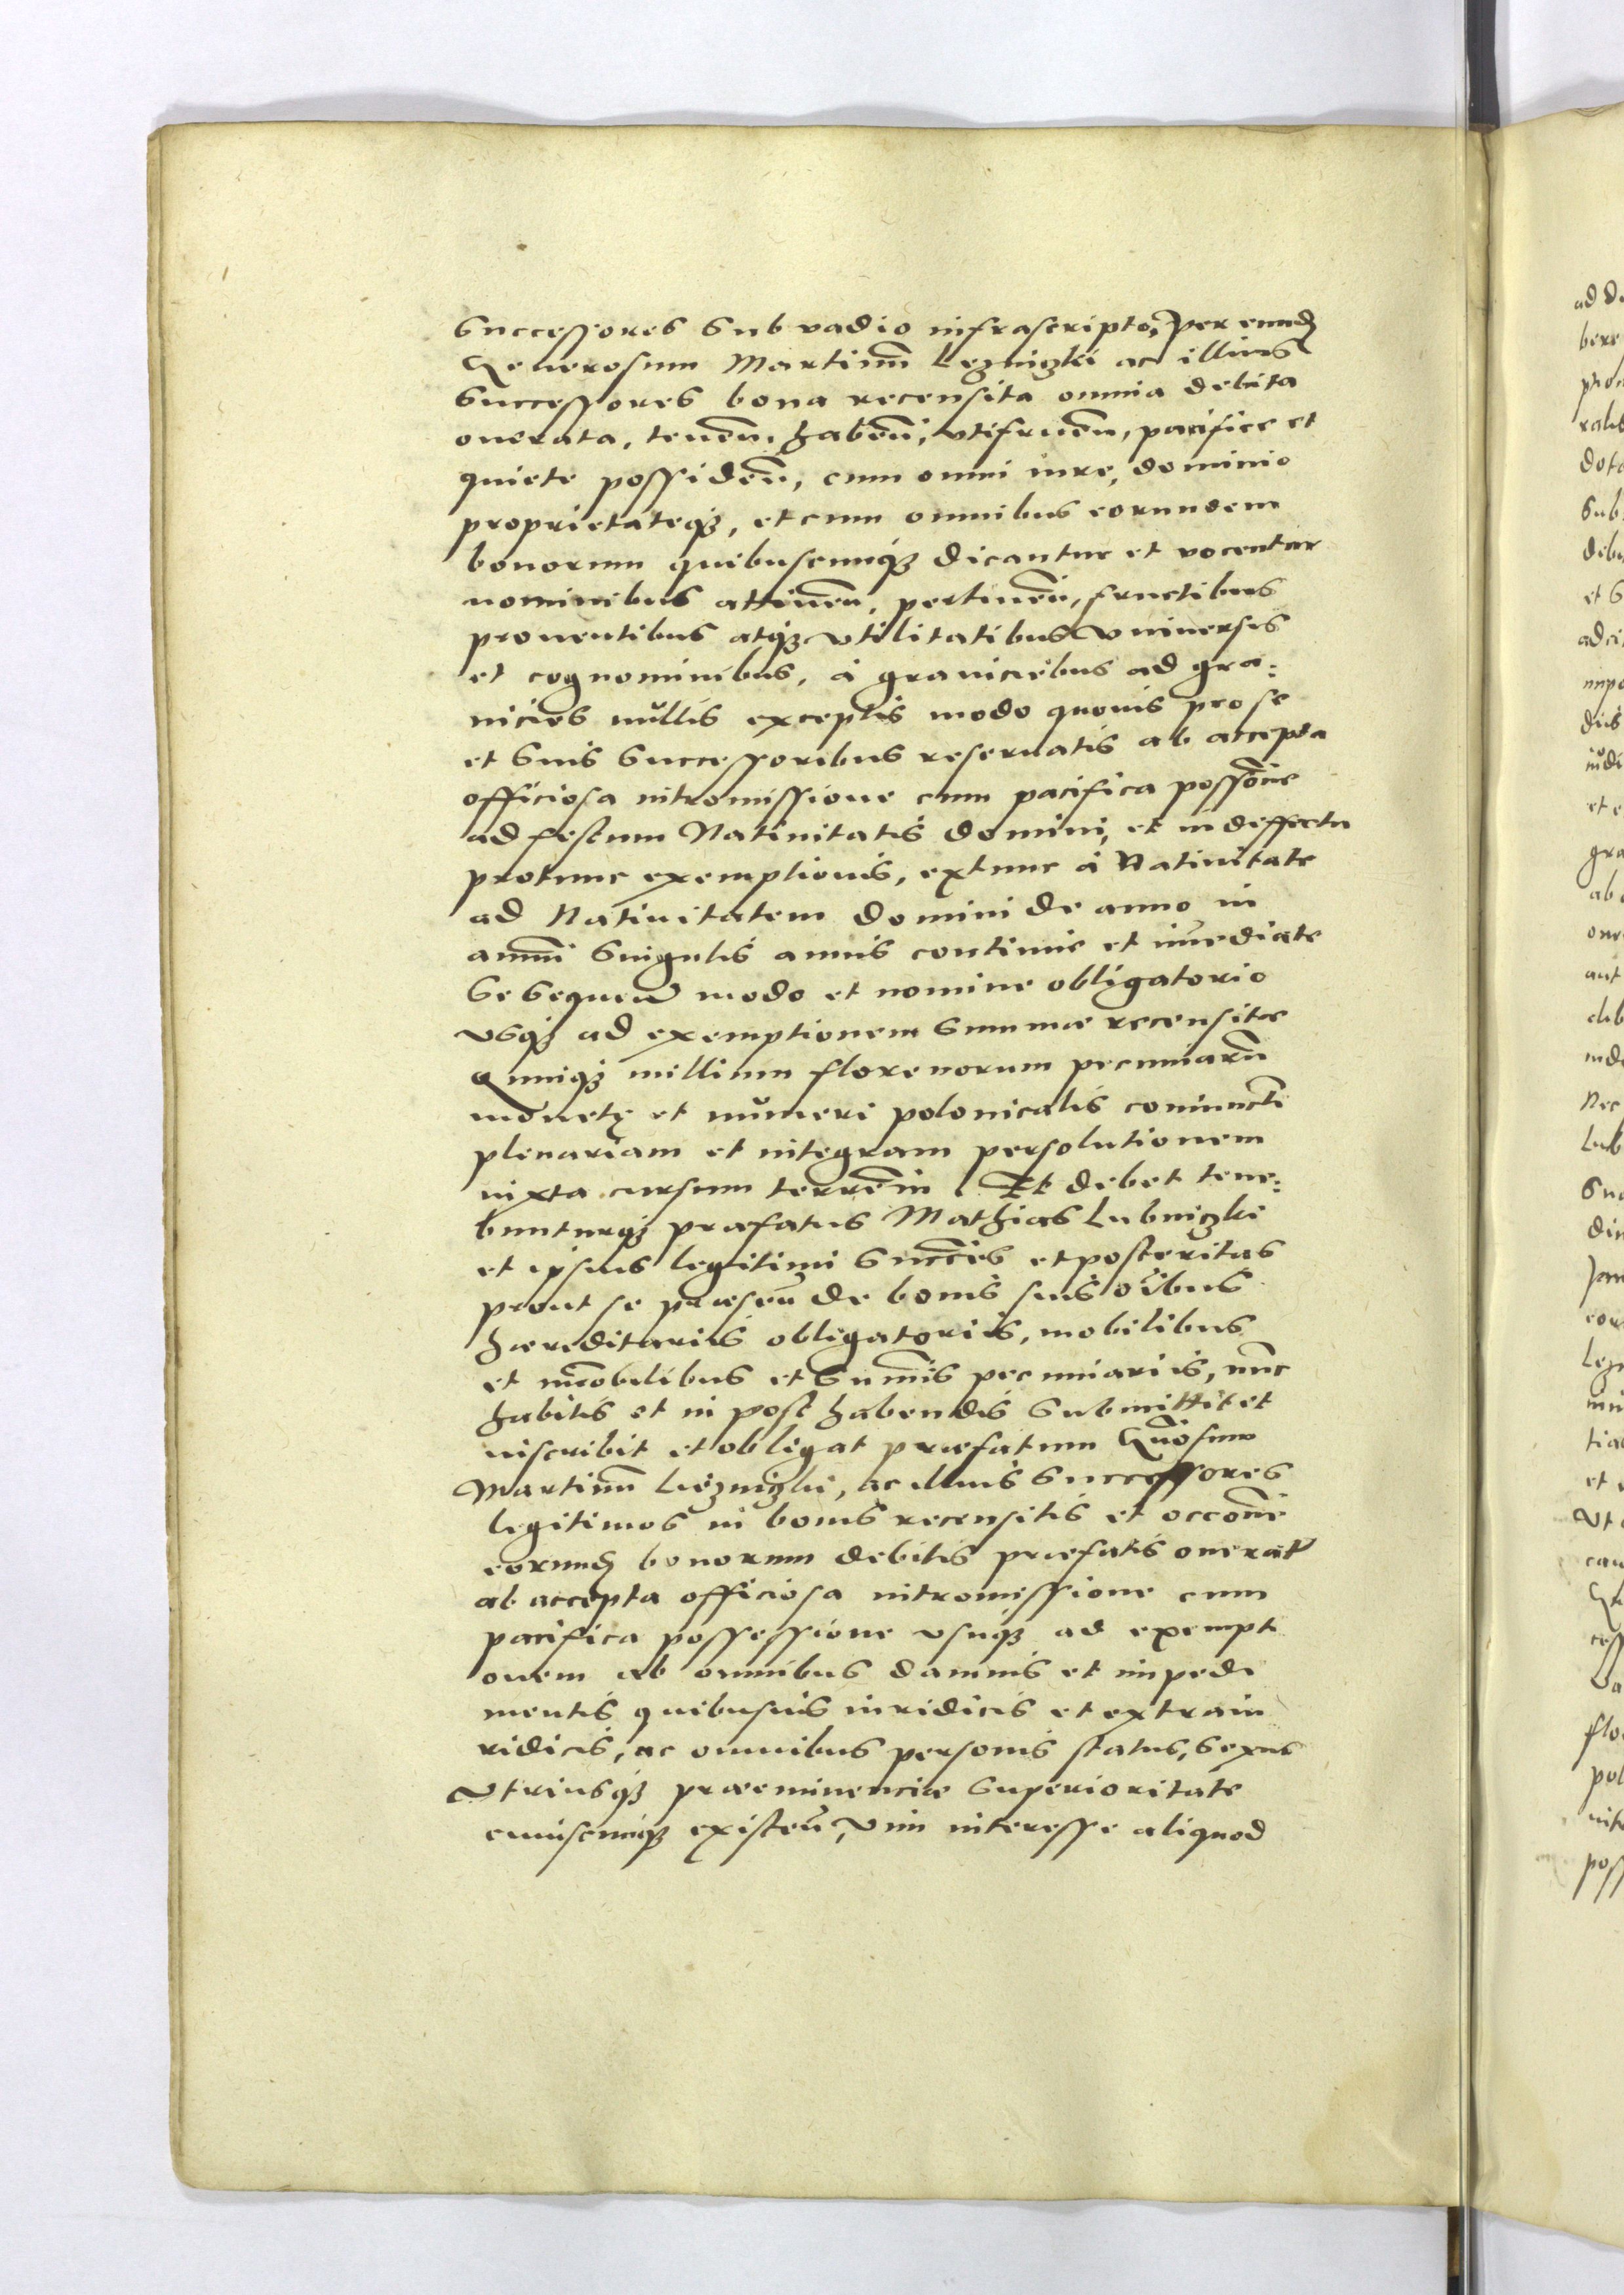 successores sub vadio infrascripto, per eund
Generosum Martinu Lezniczki ac illius
successores bona recensita omnia debita
onerata, tenen. haben, vtifruen, pacifice et
quiete possiden, cum omni iure, dominio
proprietateq, et cum omnibus eorundem
bonorum quibuscunq dicantur et vocentur
nominibus attinen, pertinen, fructibus
prouentibus atq vtilitatibus vniuersis
et cognominibus, à graniciebus ad gra:
nicies nullis exceptis modo quouis pro se
et suis successoribus reseruatis ab accepta
officiosa intromissione cum pacifica possone
ad festum Natiuitatis domini, et in deffectu
protunc exemptionis, extunc à Natiuitate
ad Natiuitatem domini de anno in
annu singulis annis continue et imediate
se sequen modo et nomine obligatorio
vsq ad exemptionem summæ recensitæ
Quinq millium florenorum pecuniaru
monetę et numeri polonicalis coniuncti
plenariam et integram persolutionem
iuxta cursum terren in Et debet tene:
bunturq præfatus Mathias Lubniczki
et ipsius legitimi succes et posteritas
prout se præsen de bonis suis oibus
hæreditariis obligatoriis, mobilibus
et imobilibus et sumis pecuniariis, nunc
habitis et in post habendis submittit et
inscribit et obligat præfatum Gnosum
Martinu Liezniczki, ac illius successores
legitimos in bonis recensitis et occone
eorund bonorum debitis præfatis onerat
ab accepta officiosa intromissione cum
pacifica possessione vsuq ad exempti
onem ab omnibus damnis et impedi
mentis quibusuis iuridicis et extraiu
ridicis, ac omnibus personis status, sexus
vtriusq præeminenciæ superioritate
cuiuscunq existen, vim interesse aliquod